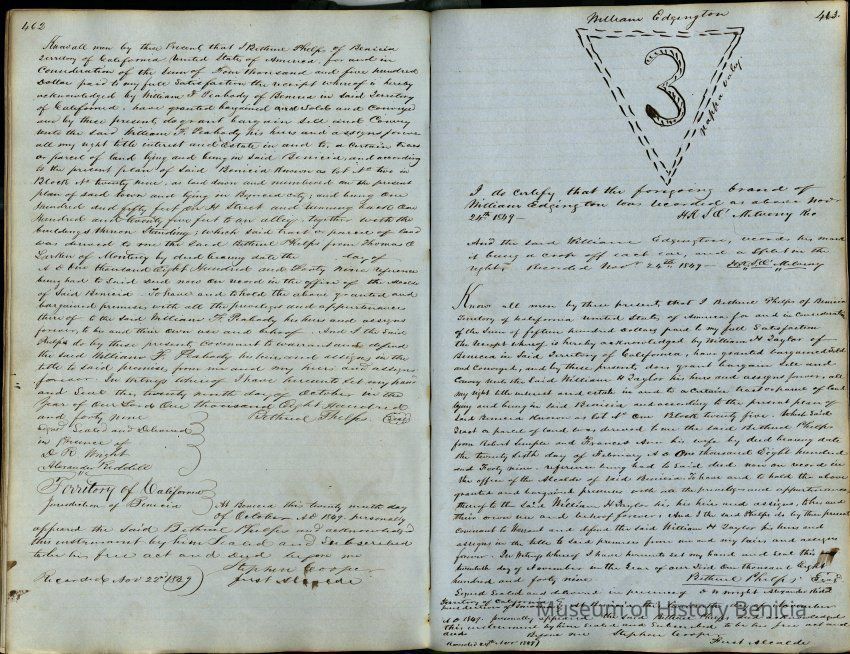 462
Know all men by these Present, that I Bethuel Phelps of Benicia
Territory of California United State of America, for and in
Consideration of the Sum of Four thousand and five hundred
Dollar paid to my full Satisfaction the receipt whereof is hereby
acknowledged by William F. Peabody of Benicia in said Territory
of California, have granted bargained and Sold and Conveyed
and by these present, do grant bargain Sell and Convey
unto the said William F. Peabody his heirs and assigns forever
all my right title interest and Estate in and to, a Certain tract
or parcel of land lying and being in said Benicia, and according
to the present plan of said Benicia Known as lot No two in
Block No twenty nine, as laid down and numbered on the present
plan of said town and lying in Benicia city, and being One
hundred and fifty feet on H Street and running back One
hundred and twenty five feet to an alley, together with the
buildings thereon Standing; which said tract or parcel of land
was deeded to me the said Bethuel Phelps from Thomas O
Larkin of Monterey by deed bearing date the day of
A D One thousand Eight Hundred and Forty Nine reference
being had to said deed now on record in the office of the Alcalde
of Said Benicia. To have and to hold the above granted and
bargained premises with all the privileges and appurtenances
thereof to the said William F. Peabody his heirs and assigns
forever, to his and their own use and behoof. And I the said
Phelps do by these present, Covenant to warrant and defend
the said William F. Peabody his heirs and assigns in the
title to said premises, from me and my heirs and assigns
forever. In witness whereof I have hereunto set my hand
and Seal this twenty ninth day of October in the
Year of Our Lord One thousand Eight Hundred
and forty nine
Bethuel Phelps
Signed Sealed and Delivered
in Presence of
D. R. Wright
Alexander Riddell
Territory of California
Jurisdiction of Benicia
At Benicia this twenty ninth day
of October A D 1849, personally
appeared the Said Bethuel Phelps and acknowledged
this instrument by him Sealed and Subscribed
to be his free act and Deed before me
Stephen Cooper
first Alcalde
Recorded Nov 22d 1849
463.
William Edgington
3
Nappa Valy
I do certify that the foregoing brand of
William Edgington was recorded as above Nov
24th 1849—
And the said William Edgington, records his mark
it being a crop off each ear, and a Split in the
right. Recorded Novr 24th 1849—
Know all men by these present, that I Bethuel Phelps of Benicia
Territory of California United State of America for and in Consideration
of the Sum of fifteen hundred dollars paid to my full Satisfaction
the receipt whereof is hereby acknowledged by William H Taylor of
Benicia in Said Territory of California, have granted bargained Sold
and Conveyed, and by these present, does grant bargain Sell and
Convey unto the said William H Taylor his heirs and assigns forever, all
my right title interest and estate in and to a certain tract or parcel of land
lying and being in said Benicia and according to the present plan of
said Benicia Known as lot No One Block twenty five. Which Said
tract or parcel of land was deeded to me the said Bethuel Phelps
from Robert Semple and Frances Ann his wife by deed bearing date
the twenty sixth day of February A D One thousand Eight hundred
and Forty Nine reference being had to said deed now on record in
the office of the Alcalde of said Benicia To have and to hold the above
granted and bargained premises with all the privileges and appurtenances
thereof to the said William H Taylor his heirs and assigns, to his and
their own use and behoof forever; And I the said Phelps do by these present
Covenant to Warrant and defend the said William H Taylor his heirs and
assigns in the title to said premises from me and my heirs and assigns
forever. In witness whereof I have hereunto set my hand and Seal this
twentieth day of November in the Year of our Lord One thousand Eight
hundred and forty nine
Bethuel Phelps
Signed Sealed and delivered in presence of D R Wright Alexander Riddell
Territory of California
Jurisdiction of Benicia
A D 1849, personally appeared the Said Bethuel Phelps and acknowledged
this instrument by him Sealed and Subscribed to be his free act and
deed Before me Stephen Cooper
First Alcalde
Recorded 24th Nov 1849
Museum of History Benicia